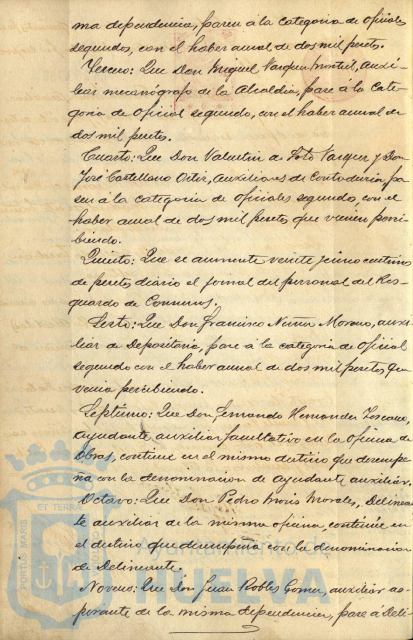 ma dependencia, pasen a la categoria de oficiales
segundos, con el haber anual de dos mil pesetas.
Tercero: Que Don Miguel Vazquez Montiel, Auxi-
liar mecanógrafo de la Alcaldia, pase a la cate
goria de Oficial segundo, con el haber anual de
dos mil pesetas.
Cuarto: Que Don Valentin de Soto Vazquez y Don
José Castellano Ortiz, auxiliares de Contaduria pa
sen á la categoria de oficiales segundos, con el
haber anual de dos mil pesetas que venian perci
biendo.
Quinto: Que se aumente veinte y cinco centimos
de peseta diario el jornal del personal del Res
guardo de Consumos.
Sexto: Que Don Francisco Nuñez Moreno, auxi
liar de Depositaria, pase á la categoria de Oficial
segundo con el haber anual de dos mil pesetas, que
venia percibiendo.
Septimo: Que Don Fernando Hernandez
ayudante auxiliar facultativo en la Oficina de
Obras, continue en el mismo destino que desempe
ña con la denominacion de ayudante auxiliar.
Octavo: Que Don Pedro Morales, Delinean
te auxiliar de la misma oficina, continue en
el destino que desempeña con la denominacion
de Delineante.
Noveno: Que Don Juan Robles Gomez, auxiliar as-
pirante de la misma dependencia, pase á Deli-
PORTUS MARIS
ET TERRAE
Ayuntamiento de
HUELVA